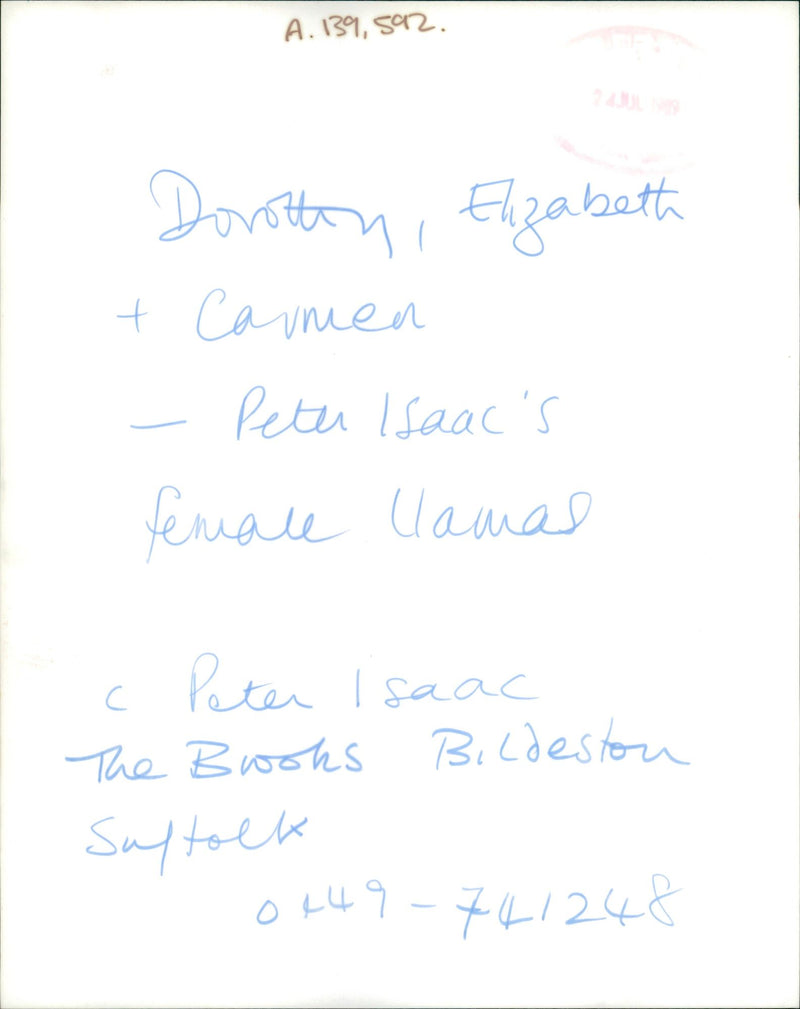 A.139,592.
24 JUL 1989
Dorothy, Elizabeth
+ Carmen
— Peter Isaac's
female llamas
c Peter Isaac
The Brooks Bildeston
Suffolk
0449-741248